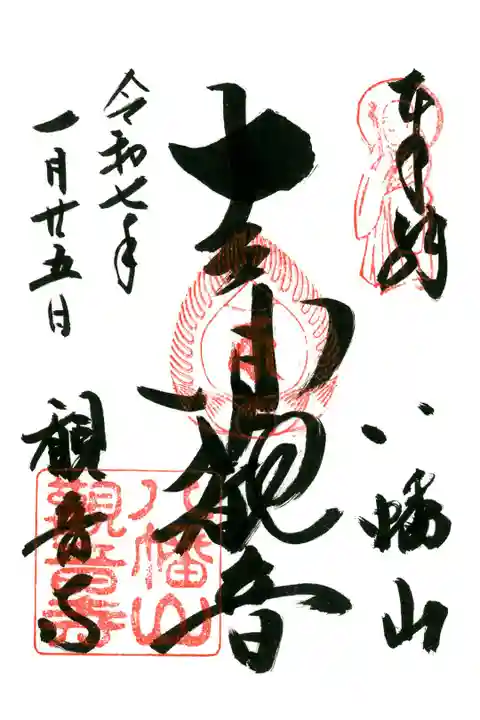 八幡山
十一面観音
令和七年
一月廿五日
観音寺
八幡山
觀音寺